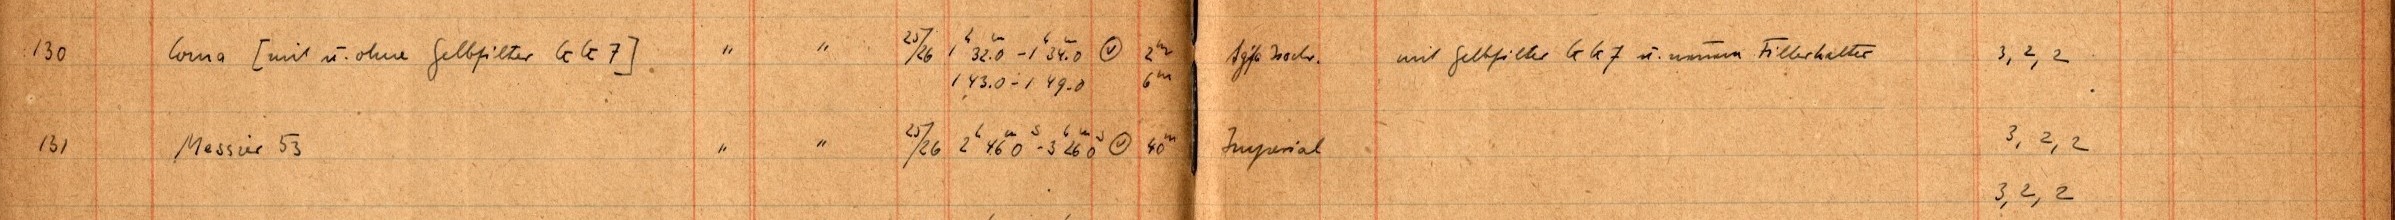 130 Coma [mit u. ohne Gelbfilter GG 7] " " 25/26 1h 32m.0 - 1h 34m.0 2m Agfa Isochr. mit Gelbfilter GG 7 u. Filterhalter 3, 2, 2
1 43.0 - 1 49.0 6m
131 Messier 53 " " 25/26 2h 46m 0s - 3h 26m 0s 40m Imperial 3, 2, 2
3, 2, 2